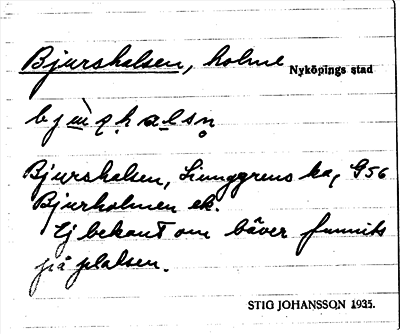 Bjurshalsen, holme Nyköpings stad
Bjurshalsen, Ljunggrens ka, G56
Bjurholmen ek.
Ej bekant om bäver funnits
på platsen.
STIG JOHANSSON 1935.